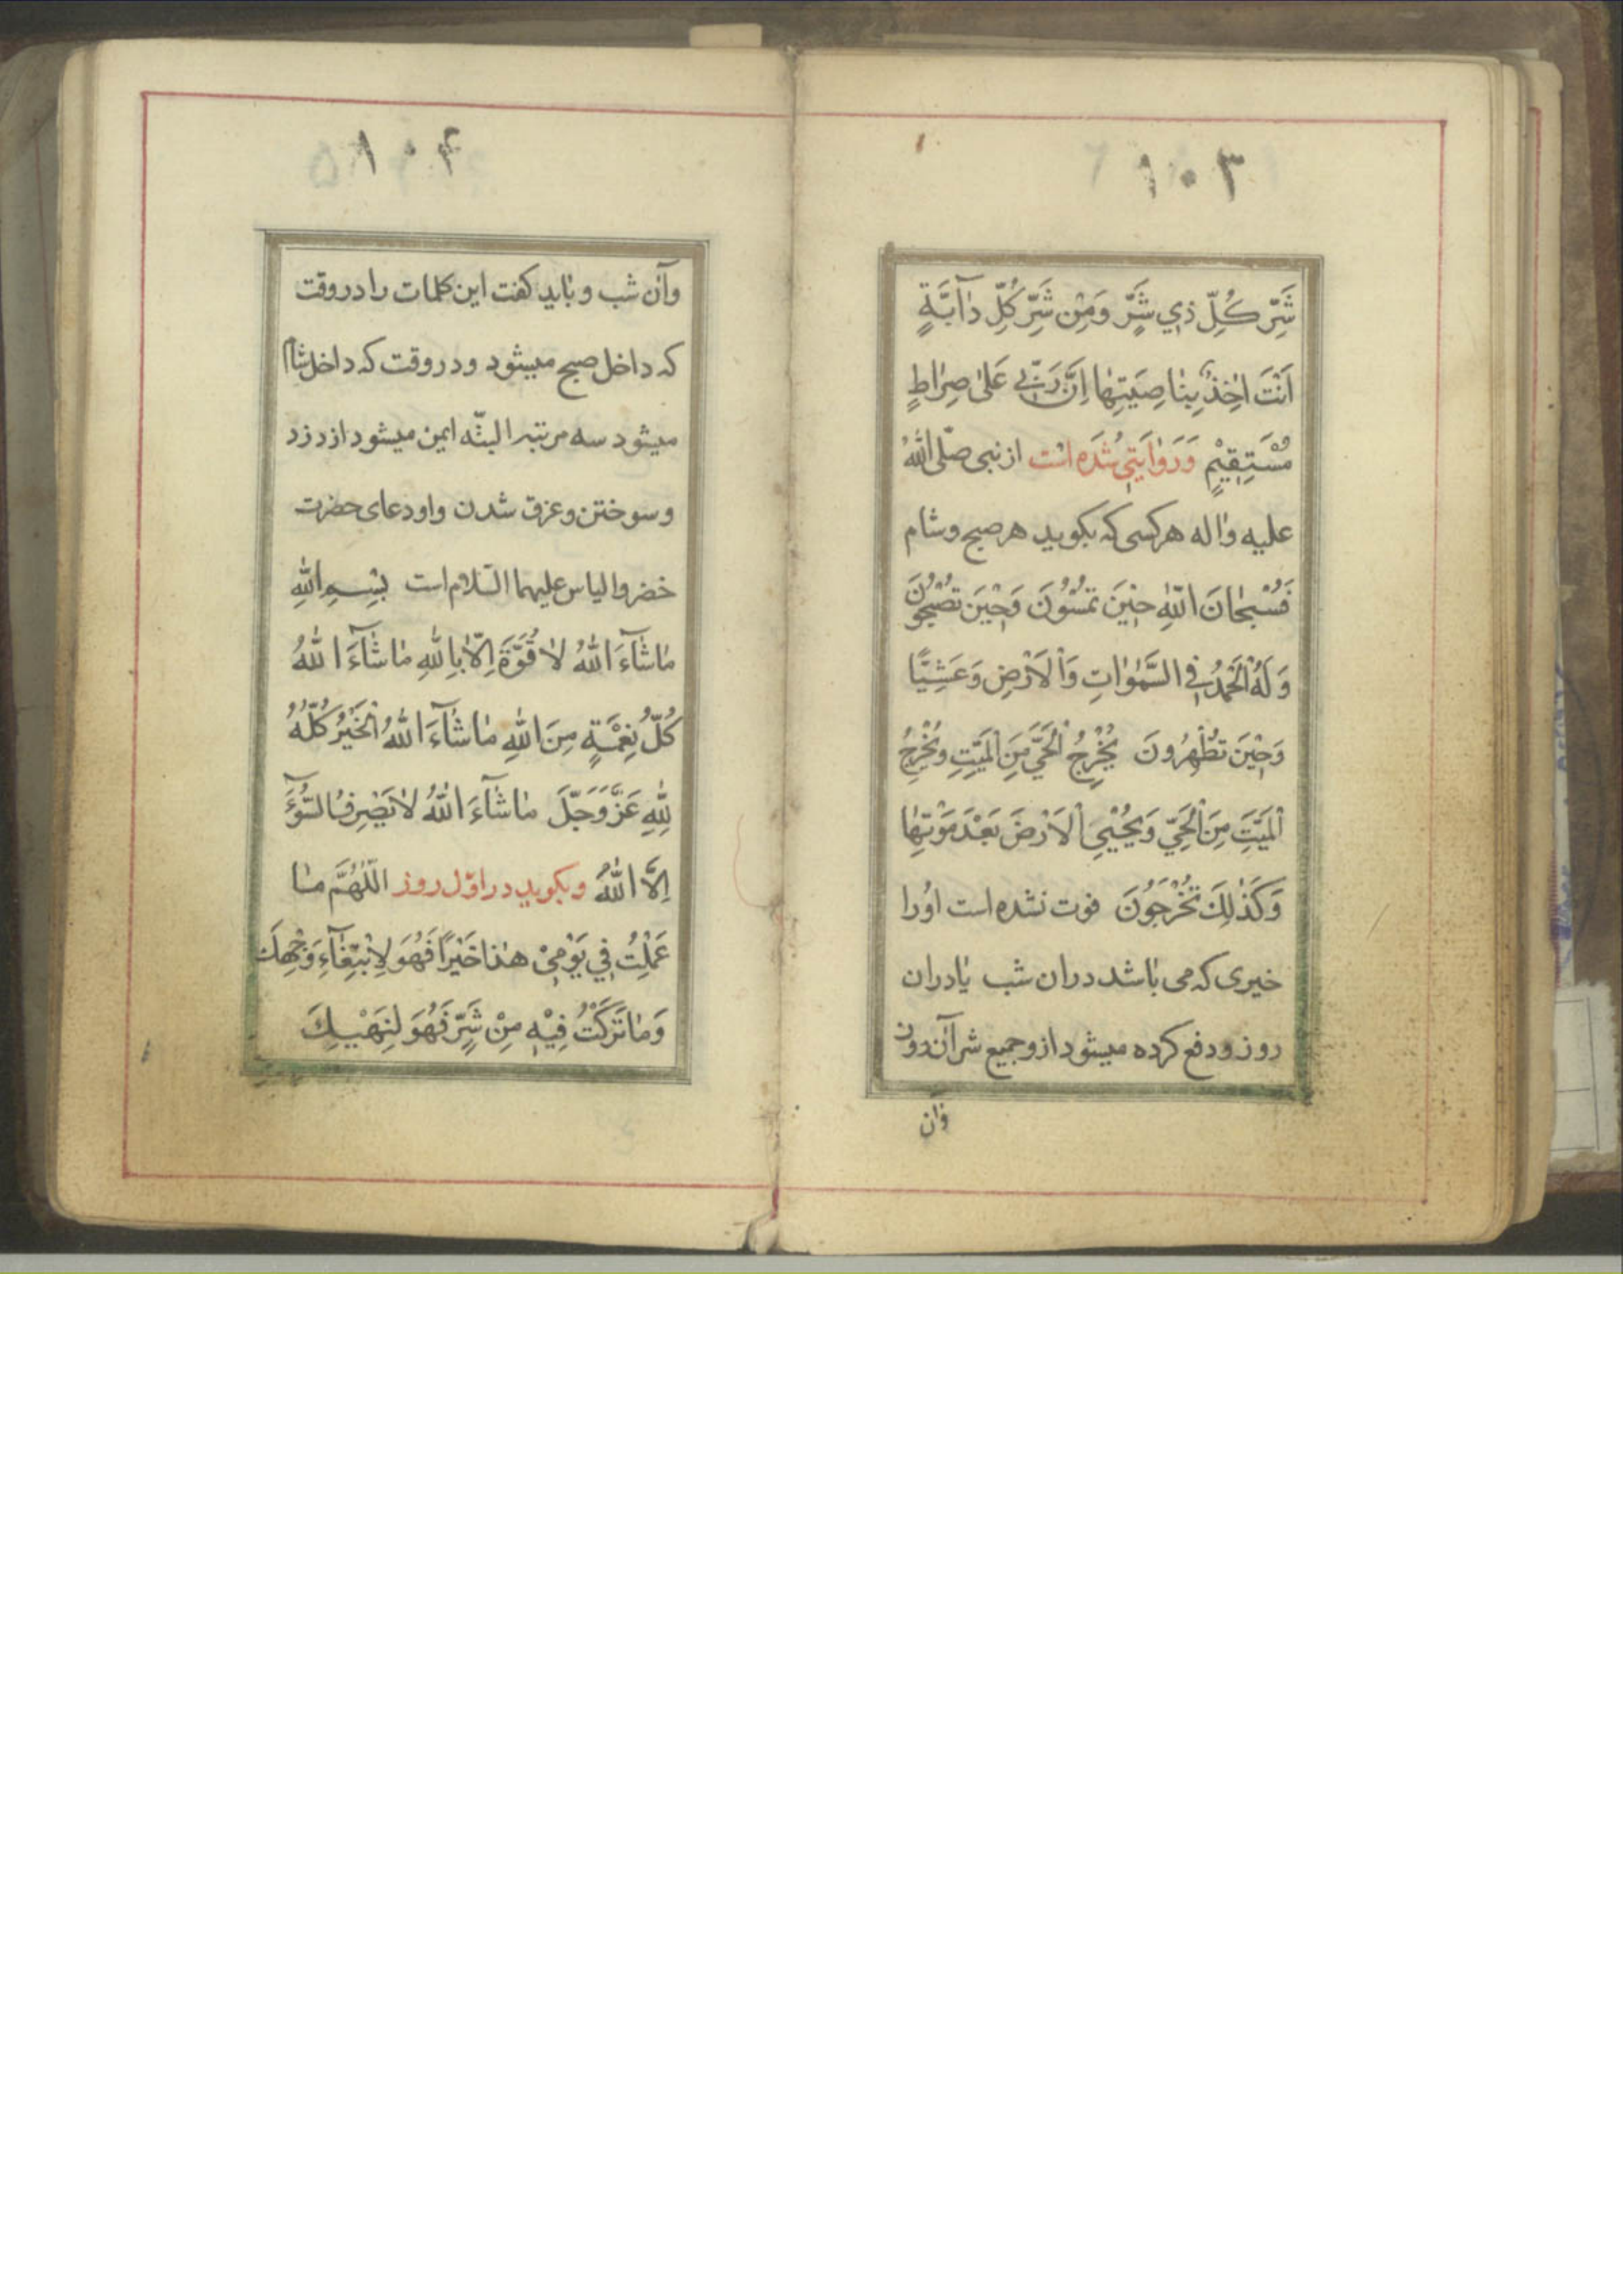 ١٠٣
شَرِّ كُلِّ ذي شَرٍّ وَمِنْ شَرِّ كُلِّ دٰآبَّةٍ
اَنْتَ اٰخِذٌ بِنٰاصِيَتِهٰا اِنَّ رَبّي عَلىٰ صِرٰاطٍ
مُسْتَقِيْمٍ وَرَوٰايَتي شُدَه است از نبى صلّى اللّٰهُ
عليه واٰله هركسى كه بكويد هر صبح وشام
فَسُبْحٰانَ اللّٰهِ حيْنَ تُمْسُوُنَ وَحيْنَ تُصْبِحُوُنَ
وَلَهُ الْحَمْدُ فِي السَّمٰوٰاتِ وَاْلاَرْضِ وَعَشِيًّا
وَحيْنَ تُظْهِرُونَ يُخْرِجُ الْحَيَّ مِنَ الْمَيِّتِ وَيُخْرِجُ
الْمَيِّتَ مِنَ الْحَيِّ وَيُحْيِي اْلاَرْضَ بَعْدَ مَوْتِهٰا
وَكَذٰلِكَ تُخْرَجُوُنَ فوت نشده است اوُرا
خيرى كه مى بٰاشد دران شب يٰا دران
روز ودفع كرده ميشود ازو جميع شر آن روز
وٰان
١٠٤
وآن شب و بٰايد كفت اين كلمات را در وقت
كه داخل صبح ميشود ودر وقت كه داخل شام
ميشود سه مرتبه البتّه ايمن ميشود از دزد
و سوختن وغرق شدن واو دعاى حضرت
خضر والياس عليهما السّلام است بِسْمِ اللّٰهِ
مٰاشٰآءَ اللّٰهُ لاٰ قُوَّةَ اِلاّٰ بِاللّٰهِ مٰاشٰآءَ اللّٰهُ
كُلُّ نِعْمَةٍ مِنَ اللّٰهِ مٰاشٰآءَ اللّٰهُ اَلْخَيْرُ كُلُّهُ
لِلّٰهِ عَزَّ وَجَلَّ مٰاشٰآءَ اللّٰهُ لاٰيَصْرِفُ السُّوُٓءَ
اِلاَّ اللّٰهُ وبكويد در اوّل روز اَللّٰهُمَّ مٰا
عَمِلْتُ في يَوْمي هٰذا خَيْرًا فَهُوَ لاِبْتِغٰآءِ وَجْهِكَ
وَمٰا تَرَكْتُ فيْهِ مِنْ شَرٍّ فَهُوَ لِنَهْيِكَ